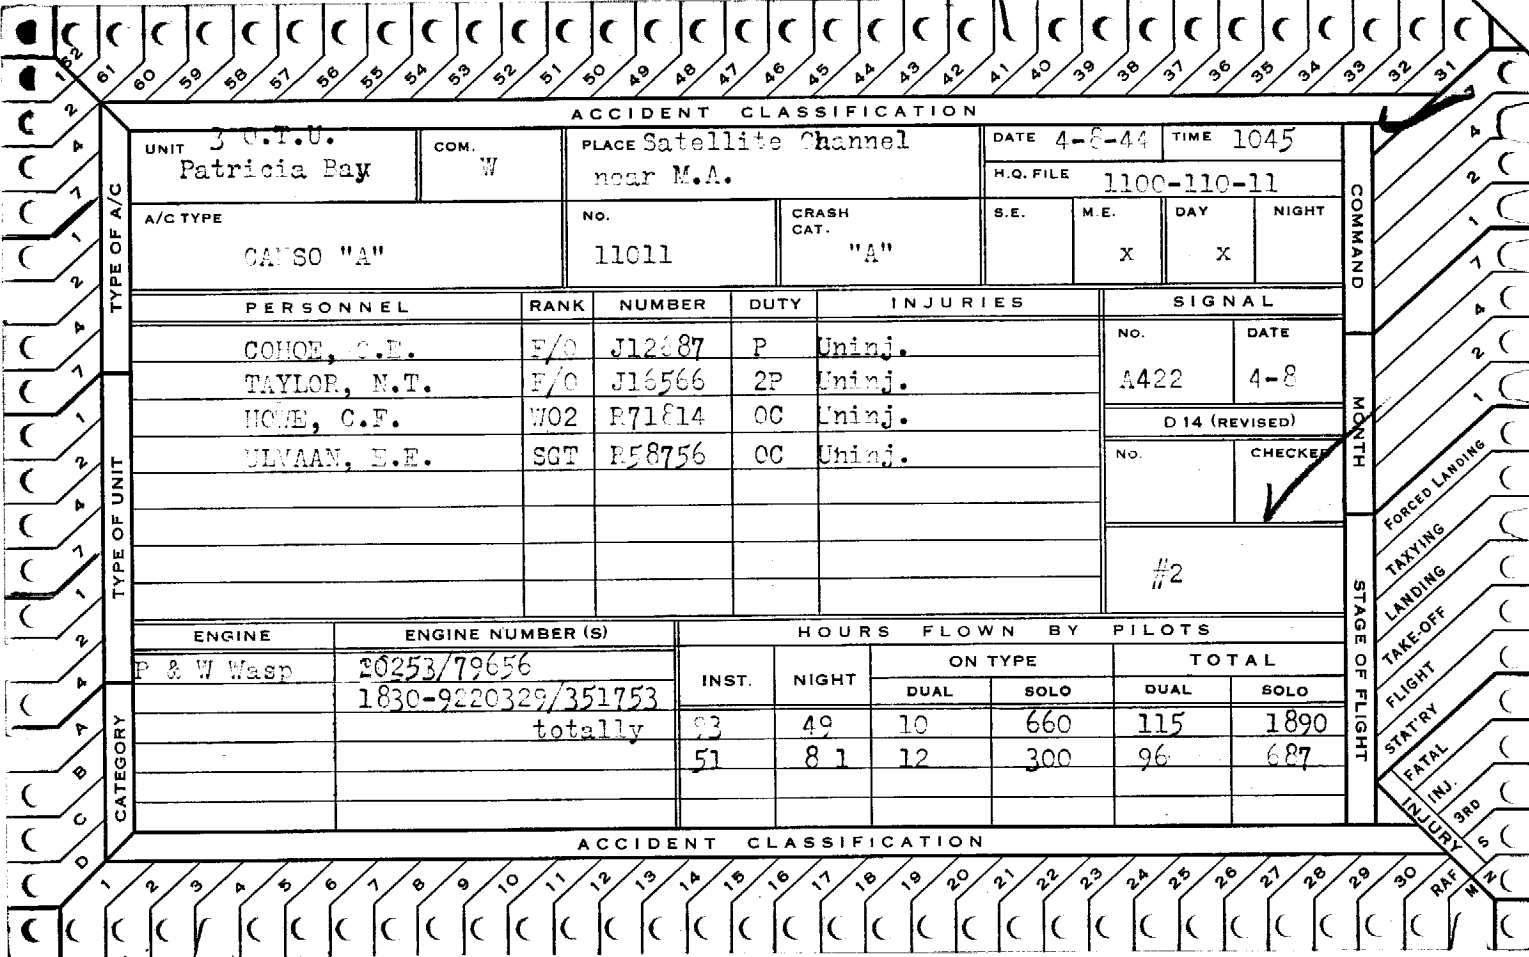 62 61 60 59 58 57 56 55 54 53 52 51 50 49 48 47 46 45 44 43 42 41 40 39 38 37 36 35 34 33 32 31
ACCIDENT CLASSIFICATION
UNIT 3 O.T.U.
Patricia Bay
COM.
W
PLACE Satellite Channel
near M.A.
DATE 4-8-44
TIME 1045
H.Q. FILE 1100-110-11
A/C TYPE
CANSO "A"
NO.
11011
CRASH
CAT.
"A"
S.E.
M.E.
x
DAY
x
NIGHT
PERSONNEL RANK NUMBER DUTY INJURIES
COHOE, F/O J12687 P Uninj.
TAYLOR, N.T. F/O J16566 2P Uninj.
HOWE, C.F. WO2 R71814 OC Uninj.
ULVAAN, E.E. SGT R58756 OC Uninj.
SIGNAL
NO.
A422
DATE
4-8
D 14 (REVISED)
NO.
CHECKED
#2
ENGINE ENGINE NUMBER (S)
P & W Wasp 20253/79656
1830-9220329/351753
totally
HOURS FLOWN BY PILOTS
INST. NIGHT ON TYPE TOTAL
DUAL SOLO DUAL SOLO
93 49 10 660 115 1890
51 81 12 300 96 687
ACCIDENT CLASSIFICATION
TYPE OF A/C
TYPE OF UNIT
CATEGORY
1 2 4 7 1 2 4 7 1 2 4 7 1 2 4 A B C D
COMMAND
MONTH
STAGE OF FLIGHT
4 2 1 7 4 2 1
FORCED LANDING
TAXYING
LANDING
TAKE-OFF
FLIGHT
STAT'RY
FATAL
INJ.
3RD
INJURY
S
N
M
RAF
1 2 3 4 5 6 7 8 9 10 11 12 13 14 15 16 17 18 19 20 21 22 23 24 25 26 27 28 29 30